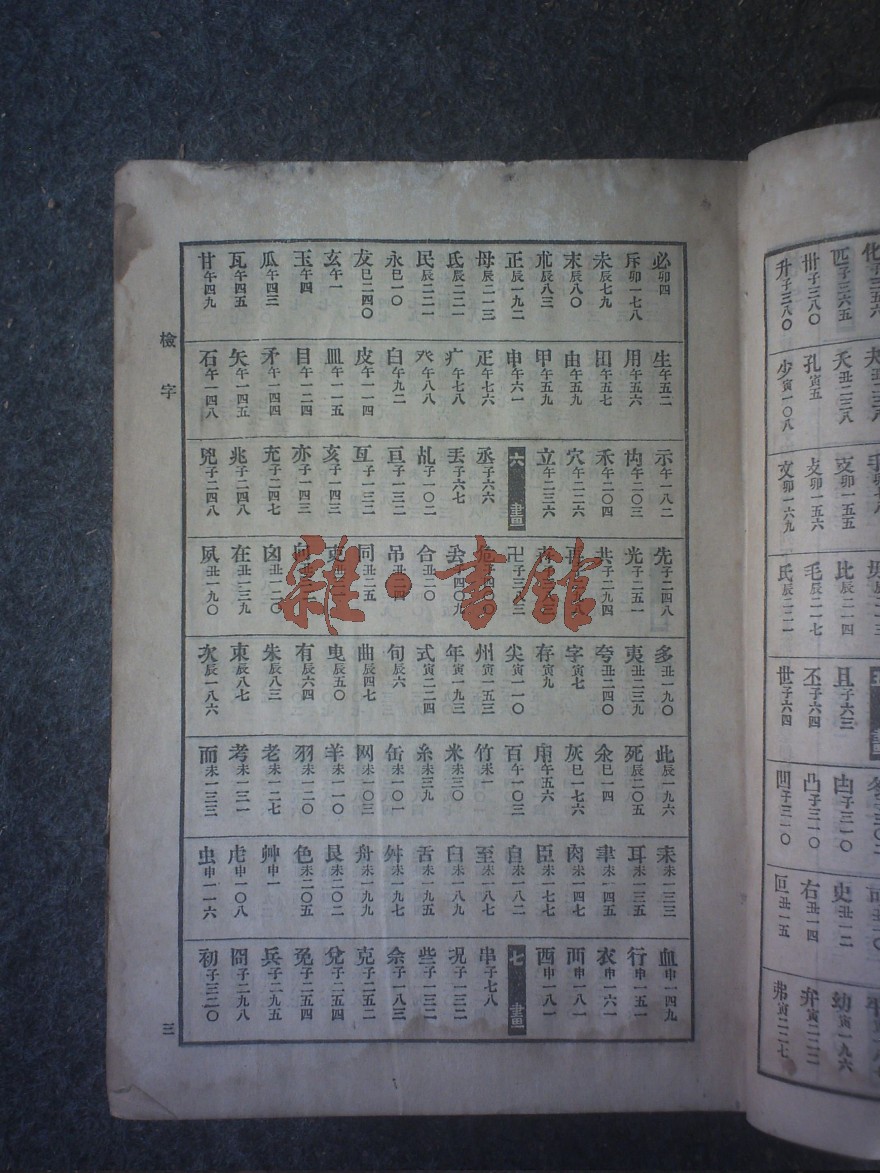 檢字
必卯四
斥卯一七八
未辰七九
末辰八〇
朮辰八三
正辰一九二
母辰二一三
氏辰二二一
民辰二二一
永巳一〇
友巳二四〇
玄午一
玉午四
瓜午四三
瓦午四五
甘午四九
生午五二
用午五六
田午五七
由午五九
甲午五九
申午六一
疋午七六
疒午七八
癶午八八
白午九二
皮午一一四
皿午一一五
目午一二四
矛午一四四
矢午一四五
石午一四八
示午一八二
禸午二〇三
禾午二〇四
穴午二二六
立午二三六
六畫
丞子六六
丟子六七
乩子一〇二
亘子一三二
亙子一三二
亥子一四三
亦子一四三
充子二四七
兆子二四八
兕子二四八
先子二四八
光子二五一
共子二九四
再
卍子三八三
危子四〇〇
合丑二〇
吊丑二四
同丑二五
吏
向
囟丑一二〇
在丑一三九
夙丑一九〇
多丑一九〇
夷丑二三九
夸丑二四〇
字寅七
存寅九
尖寅一一〇
州寅一五三
年寅一九三
式寅二二四
旬辰六
曲辰四七
曳辰五〇
有辰六四
朱辰八三
東辰八七
次辰一八六
此辰一九六
死辰二〇五
汆巳一四
灰巳一七六
甪午五六
百午一〇三
竹未一
米未三〇
糸未三九
缶未一〇一
网未一〇三
羊未一一〇
羽未一二〇
老未一二七
考未一三一
而未一三三
耒未一三三
耳未一三五
聿未一四五
肉未一四七
臣未一七七
自未一八二
至未一八七
臼未一八九
舌未一九五
舛未一九七
舟未一九九
艮未二〇二
色未二〇五
艸申一
虍申一〇八
虫申一一六
血申一四九
行申一五一
衣申一六一
襾申一八一
西申一八一
七畫
串子七八
況子一三二
些子一三二
余子一八三
克子二五二
兌子二五四
免子二五四
兵子二九五
冏子二九八
初子三二〇
三
匹子三六五
卅子三八〇
升子三八〇
夭丑二三八
孔寅五
少寅一〇八
攴卯一五五
攵卯一五六
文卯一六九
比辰二一四
毛辰二一七
氏辰二二一
畫
且子六三
丕子六四
世子六四
凸子三一〇
凹子三一〇
史丑一二
右丑一四
叵丑一五
幼寅一九六
弁寅二二二
弗寅二二七
雜·書館